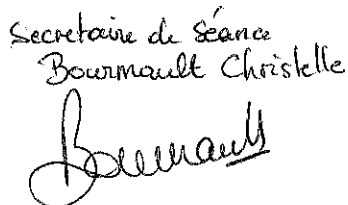 Secretaire de Séance
Bourmault Christelle
Bourmault